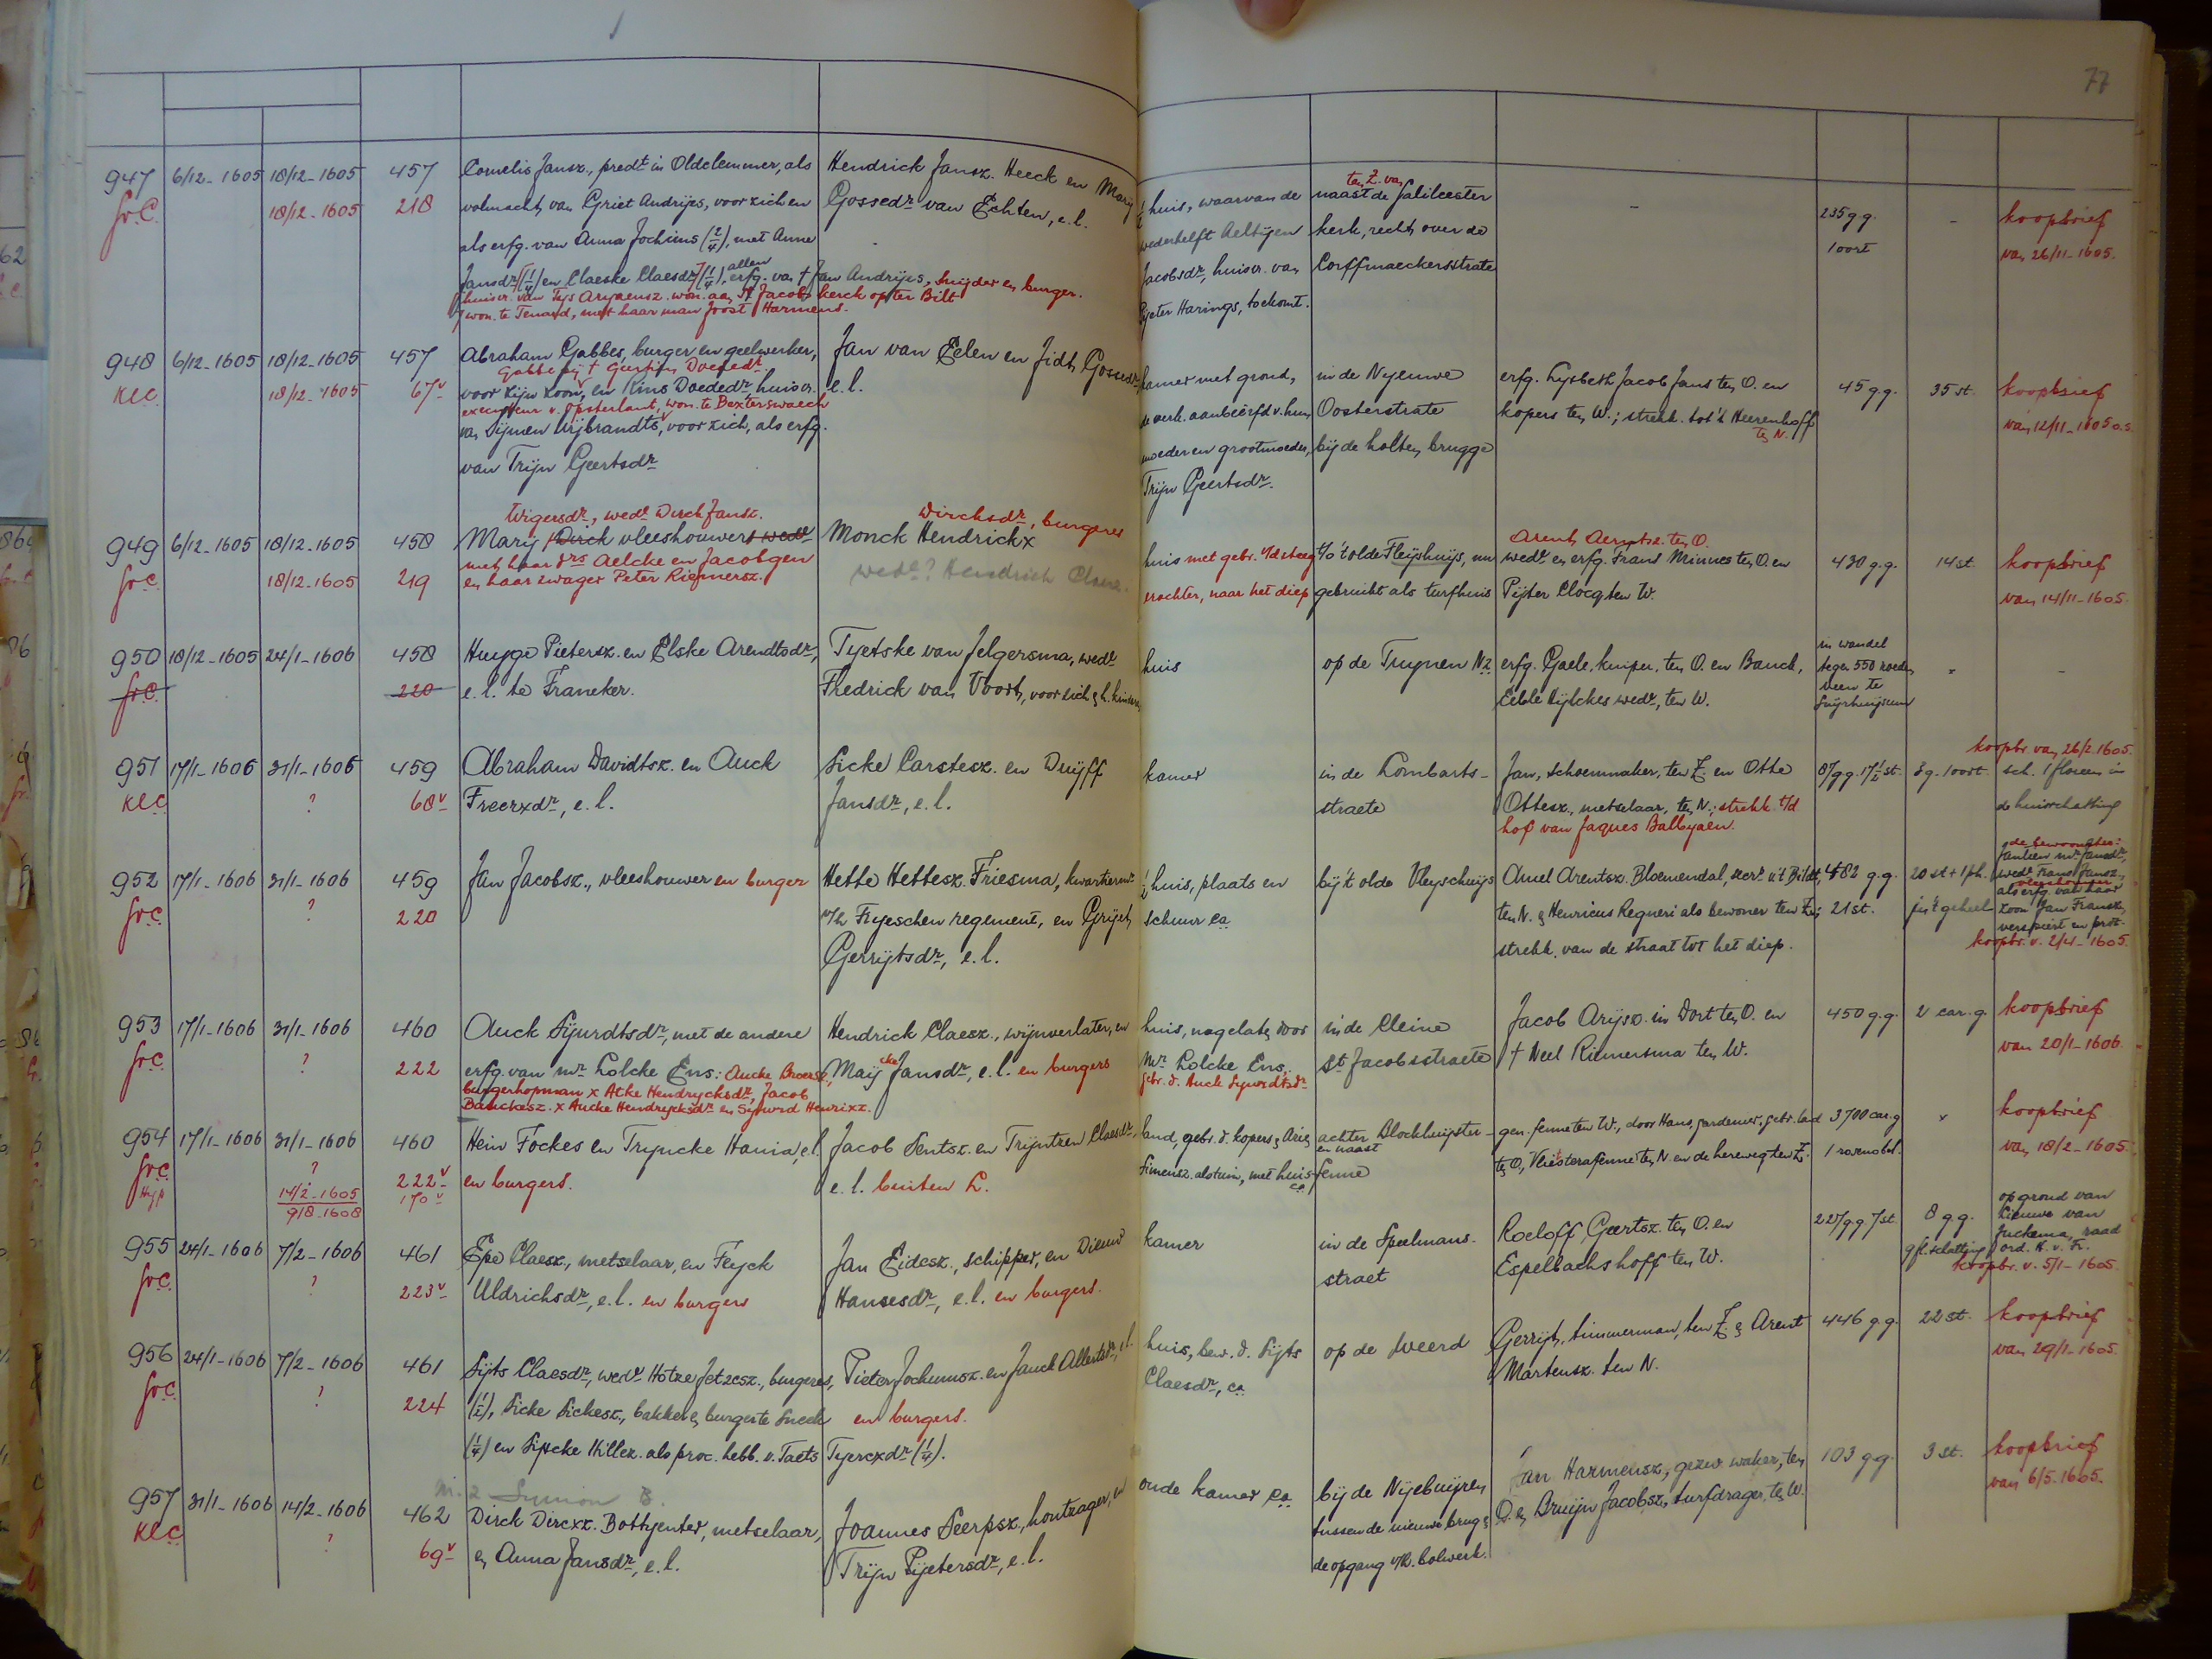 77
947 6/12-1605 18/12-1605 457 Cornelis Jansz., pred^t in Oldelemmer, als Hendrick Jansz. Heeck en Mary ½ huis, waarvan de naast de Galileester - 235 gg. - koopbrief
ten Z. van
Gr.C. 18/12-1605 218 volmacht van Griet Andries, voor zich en Gossed^r van Echten, e.l. wederhelft Aeltijen kerk, recht over de 1 oort van 26/11-1605.
als erfg. van Anna Jochims (2/4), met Anne Jacobsd^r, huisvr. van Corffmaeckersstrate
Jansd^r (1/4) en Claeske Claesd^r (1/4), allen erfg. van † Jan Andries, snijder en burger. Pyeter Harings, toekomt.
huisvr. van Tys Aryaensz. won. aan St Jacobs kerck opter Bilt
won. te Ternaard, met haar man Joost Harmens.
948 6/12-1605 18/12-1605 457 Abraham Gabbes, burger en geelwerker, Jan van Eelen en Jidt Gossesd^r, kamer met grond, in de Nyeuwe erfg. Lysbeth Jacob Jans ten O. en 45 g.g. 35 st. koopbrief
Kl.C. 18/12-1605 67^v voor zijn zoon, en Rins Doeded^r, huisvr. e.l. de verk. aanbeërfd v. hun Oosterstrate kopers ten W.; strekk. tot 't Heerenhoff ten N. van 12/11-1605 o.s.
executeur v. Opsterlant, won. te Beetterswaech
van Sijmen Wijbrandts, voor zich, als erfg. moeder en grootmoeder, bij de holten brugge
van Trijn Geertsd^r Trijn Geertsd^r.
Wigersd^r, wed^e Dirck Jansz. Dircksd^r, burgeres Arent Aerntsz. ten O.
949 6/12-1605 18/12-1605 458 Marij Dirck vleeshouwers wed^e Monck Hendrickx huis met gebr. v/d steeg t/o 't olde Fleijshuijs, nu wed^e en erfg. Frans Minnes ten O. en 430 g.g. 14 st. koopbrief
Gr.C. 18/12-1605 219 met haar d^rs Aelcke en Jacobgen wed^e? Hendrick erachter, naar het diep gebruikt als turfhuis Pijter Clocq ten W. van 14/11-1605.
en haar zwager Peter Riemersz.
950 18/12-1605 24/1-1606 458 Huyge Pietersz. en Elske Arendtsd^r, Tyetske van Jelgersma, wed^e huis op de Tuynen NZ erfg. Gaele, kuiper, ten O. en Bauck, in wandel - -
tegen 550 roeden
Gr.C. 220 e.l. te Franeker. Fredrick van Voort, voor zich & h. kinderen Eelle Sijtckes wed^e, ten W. veen te
951 17/1-1606 31/1-1606 459 Abraham Davidtsz. en Auck Sicke Carstesz. en Duijff kamer in de Lombarts- Jan, schoenmaker, ten Z. en Otte 87 gg. 17½ st. 3 g. 1 oort. koopbr. van 26/2.1605.
sch. 1 floreen in
Kl.C. ? 68^v Freerxd^r, e.l. Jansd^r, e.l. straete Ottesz., metselaar, ten N.; strekk. t/d de huisschatting
hof van Jaques Balbyaen.
952 17/1-1606 31/1-1606 459 Jan Jacobsz., vleeshouwer en burger Hette Hettesz. Friesma, kwartierm^r ½ huis, plaats en bij 't olde Vleyschuijs Amel Arentsz. Bloemendal, secr. v 't Bildt, 482 g.g. 20 st + 1 ph. de bewoonster:
wed^e Frans Jansz.,
als erfg. van haar
Gr.C. ? 220 v/h Fryeschen regiment, en Grijet schuur ca ten N. & Henricus Regneri als bewoner ten Z.; 21 st. in 't geheel zoon Jan Fransz.,
Gerrijtsd^r, e.l. strekk. van de straat tot het diep. koopbr. v. 2/4-1605.
953 17/1-1606 31/1-1606 460 Auck Sijurdtsd^r, met de andere Hendrick Claesz., wijnverlater, en huis, nagelaten door in de Cleine Jacob Arijsz. in Dort ten O. en 450 g.g. 2 car. g. koopbrief
Gr.C. ? 222 erfg. van m^r Lolcke Ens.: Aucke Broersz., Maijcke Jansd^r, e.l. en burgers M^r Lolcke Ens, St Jacobsstraete † Neel Riemersma ten W. van 20/1-1606.
burgerhopman x Atke Hendrycksd^r, Jacob gebr. d. Auck Sijurdtsd^r
Bauckesz. x Aucke Hendrycksd^r en Sijurd Henrixz.
954 17/1-1606 31/1-1606 460 Hein Fockes en Tryncke Hania, e.l. Jacob Sentsz. en Trijntzen Claesd^r, land, gebr. d. kopers & Arien achter Blockhuijster- gen. fenne ten W., door Hans, gardenier, gebr. land 3700 car. g - koopbrief
Gr.C. ? 222^v en burgers. e.l. buiten L. Simensz. als tuin, met huis ca en naast fenne ten O, Vliesterafenne ten N. en de hereweg ten Z. 1 rosenobel. van 18/2-1605.
Hyp 14/2-1605 170^v
9/8-1608
955 24/1-1606 7/2-1606 461 Epe Claesz., metselaar, en Fieyck Jan Eidesz., schipper, en Dieuw kamer in de Speelmans- Roeloff Geertsz. ten O. en 227 gg 7 st. 8 g.g. op grond van
nieuwe van
Juckema, raad
Gr.C. ? 223^v Uldrichsd^r, e.l. en burgers Hansesd^r, e.l. en burgers. straet Espelbachs hoff ten W. 9 fl. schatting ord. H. v. Fr.
koopbr. v. 5/1-1605.
956 24/1-1606 7/2-1606 461 Sijts Claesd^r, wed^e Hotze Jetzesz., burgeres, Pieter Jochumsz. en Jauck Allertsd^r, e.l. huis, bew. d. Sijts op de Weerd Gerrijt, timmerman, ten Z. & Arent 446 g.g. 22 st. koopbrief
Gr.C. ? 224 (½), Sicke Sickesz., bakker en burger te Sneek en burgers. Claesd^r, ca Martensz. ten N. van 29/1-1605.
(¼) en Sipcke Hillez. als proc. hebb. v. Taets Tyercxd^r (¼).
957 31/1-1606 14/2-1606 462 Dirck Dircxz. Bothjenter, metselaar, Joannes Seerpsz., houtzager, en oude kamer ca bij de Nijebuijren Jan Harmensz., gezw. waker, ten 103 gg. 3 st. koopbrief
Kl.C. ? 69^v en Anna Jansd^r, e.l. Trijn Pijetersd^r, e.l. tussen de nieuwe brug & O. en Bruijn Jacobsz., turfdrager, ten W. van 6/5-1605.
de opgang v/h. bolwerk.